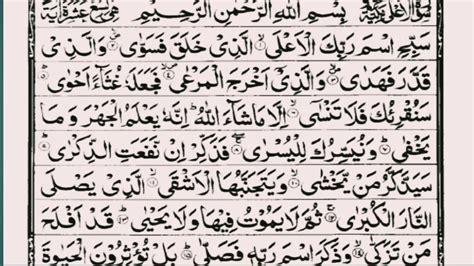 سورة الاعلى مكية بِسْمِ اللهِ الرَّحْمٰنِ الرَّحِيْمِ وهي تسع عشرة اية
سَبِّحِ اسْمَ رَبِّكَ الْاَعْلَى ۙ۱ الَّذِيْ خَلَقَ فَسَوّٰى ۙ۲ وَالَّذِيْ
قَدَّرَ فَهَدٰى ۙ۳ وَالَّذِيْٓ اَخْرَجَ الْمَرْعٰى ۙ۴ فَجَعَلَهٗ غُثَآءً اَحْوٰى ؕ۵
سَنُقْرِئُكَ فَلَا تَنْسٰٓى ۙ۶ اِلَّا مَا شَآءَ اللهُ ؕ اِنَّهٗ يَعْلَمُ الْجَهْرَ وَمَا
يَخْفٰى ؕ۷ وَنُيَسِّرُكَ لِلْيُسْرٰى ۚۖ۸ فَذَكِّرْ اِنْ نَّفَعَتِ الذِّكْرٰى ؕ۹
سَيَذَّكَّرُ مَنْ يَّخْشٰى ۙ۱۰ وَيَتَجَنَّبُهَا الْاَشْقَى ۙ۱۱ الَّذِيْ يَصْلَى
النَّارَ الْكُبْرٰى ۚ۱۲ ثُمَّ لَا يَمُوْتُ فِيْهَا وَلَا يَحْيٰى ؕ۱۳ قَدْ اَفْلَحَ
مَنْ تَزَكّٰى ۙ۱۴ وَذَكَرَ اسْمَ رَبِّهٖ فَصَلّٰى ؕ۱۵ بَلْ تُؤْثِرُوْنَ الْحَيٰوةَ